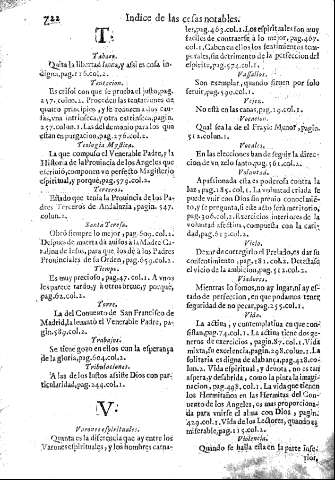 722 Indice de las cosas notables.
T.
Tabaco.
Quita la libertad santa, y assi es cosa in-
digna, pag. 116. col. 2.
Tentacion.
Es crisol con que se prueba el justo, pag.
257. colun. 2. Proceden las tentaciones de
quatro principios, y se reducen a dos cau-
sas, vna intrinseca, y otra extrinseca, pagin.
257. colun. 1. Las del demonio para los que
estàn en purgacion, pag. 276. col. 2.
Teologia Mystica.
La que compuso el Venerable Padre, y la
Historia de la Provincia de los Angeles que
escriviò, componen vn perfecto Magisterio
espiritual, y porquè, pag. 579. col. 2.
Terceros.
Estado que tenia la Provincia de los Pa-
dres Terceros de Andaluzia, pagin. 547.
colun. 2.
Santa Teresa.
Obrò siempre lo mejor, pag. 609. col. 2.
Despues de muerta dà avisos a la Madre Ca-
talina de Iesus, para que los dè a los Padres
Provinciales de su Orden, pag. 659. col. 2.
Tiempo.
Es muy precioso, pag. 47. col. 1. A vnos
les parece tardo, y à otros breve, y porquè,
pag. 62. col. 2.
Torre.
La del Convento de San Francisco de
Madrid, la levantò el Venerable Padre, pa-
gin. 589. col. 2.
Trabajos.
Se tiene gozo en ellos con la esperança
de la gloria, pag. 604. col. 2.
Tribulaciones.
A las de los justos assiste Dios con par-
ticularidad, pag. 244. col. 1.
V.
Varones espirituales.
Quanta es la diferencia que ay entre los
Varones espirituales, y los hombres carna-
les, pag. 463. col. 1. Los espirituales son muy
faciles de contraerse a lo mejor, pag. 467.
col. 1. Caben en ellos los sentimientos tem-
porales, sin detrimento de la perfeccion del
espiritu, pag. 574. col. 1.
Vassallos.
Son exemplar, quando sirven por solo
servir, pag. 590. col. 1.
Vejez.
No està en las canas, pag. 19. col. 1.
Vocacion.
Qual sea la de el Frayle Menor, pagin.
512. colun. 1.
Vocales.
En las elecciones han de seguir la direc-
cion de vn zelo santo, pag. 561. col. 2.
Voluntad.
Apassionada està es poderosa contra la
luz, pag. 185. col. 1. La voluntad criada se
puede vnir con Dios sin previo conocimien-
to, y se pregunta, si este acto serà meritorio,
pag. 306. col. 2. Exercicios interiores de la
voluntad afectiva, compuesta con la cari-
dad, pag. 619. col. 2.
Vicio.
Dexar de corregirlo el Prelado es dar su
consentimiento, pag. 181. col. 2. Detestase
el vicio de la ambicion, pag. 512. col. 2.
Viadores.
Mientras lo somos, no ay lugar, ni ay es-
tado de perfeccion, en que podamos tener
seguridad de no pecar, pag. 255. col. 1.
Vida.
La activa, y contemplativa en que con-
sistan, pag. 724. col. 1. La activa tiene dos ge-
neros de exercicios, pagin. 87. col. 1. Vida
mixta, su excelencia, pagin. 298. colun. 1. La
solitaria es digna de alabança, pag. 428. co-
lun. 2. Vida espiritual, y devota, no es tan
aspera, y desabrida, como la pinta la imagi-
nacion, pag. 498. col. 1. La vida que tienen
los Hermitaños en las Hermitas del Conven-
to de los Angeles, es mas proporciona-
da para vnirse el alma con Dios, pagin.
429. col. 1. Vida de los Lectores, quando es
miserable, pag. 215. col. 2.
Violencia.
Quando se halla està en la parte infe-
rior,